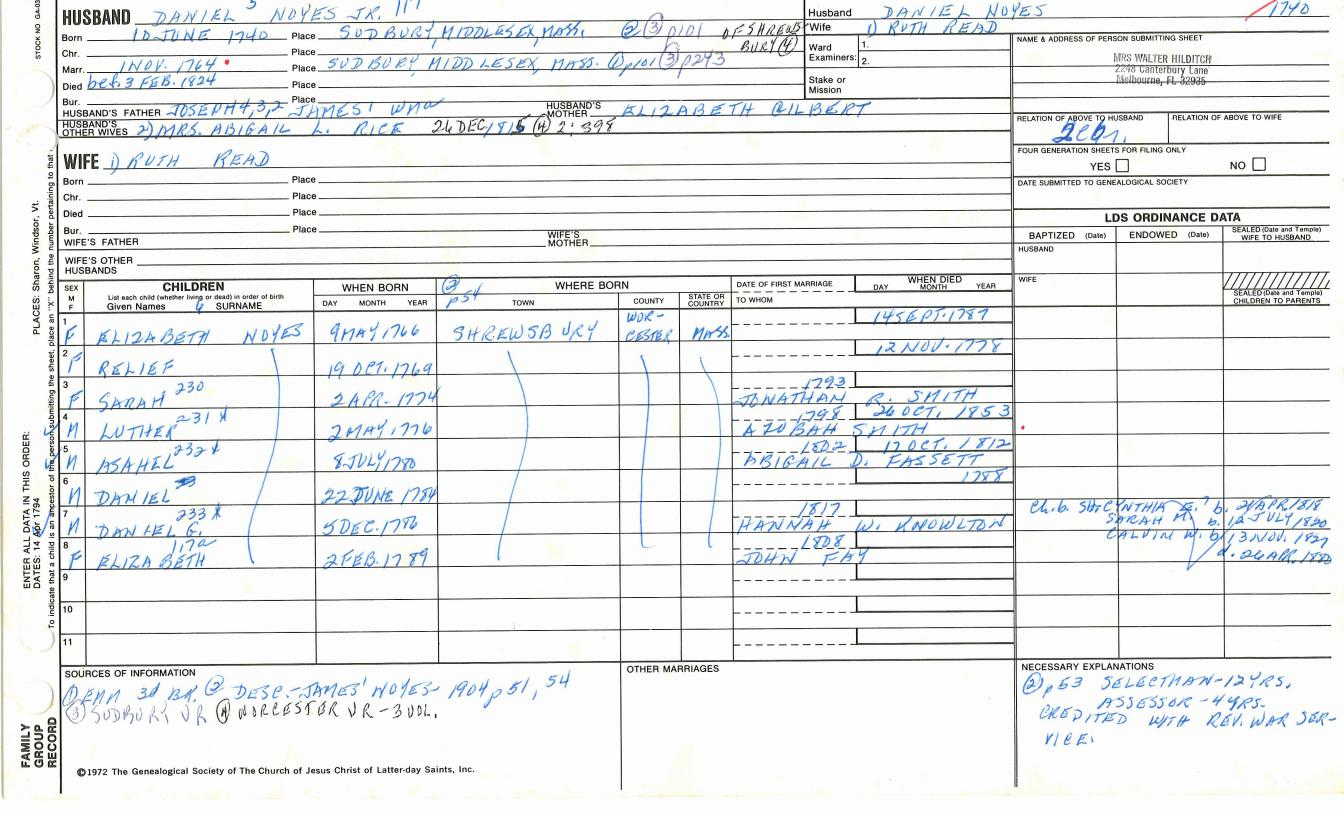 HUSBAND DANIEL NOYES JR.
Born 10 JUNE 1740 Place SUDBURY, MIDDLESEX, MASS. ② ③ p101 OF SHREWSBURY ④
Chr. Place
Marr. 1 NOV. 1764 Place SUDBURY, MIDDLESEX, MASS. ① p101 ③ p243
Died bef. 3 FEB. 1824 Place
Bur. Place
HUSBAND'S FATHER JOSEPH 4,3,2 JAMES' Wm HUSBAND'S MOTHER ELIZABETH GILBERT
HUSBAND'S OTHER WIVES 2) MRS. ABIGAIL L. RICE 26 DEC 1815 ④ 2:398
Husband DANIEL NOYES 1740
Wife 1) RUTH READ
Ward Examiners: 1.
2.
Stake or Mission
NAME & ADDRESS OF PERSON SUBMITTING SHEET
MRS WALTER HILDITCH
2248 Canterbury Lane
Melbourne, FL 32935
RELATION OF ABOVE TO HUSBAND RELATION OF ABOVE TO WIFE
FOUR GENERATION SHEETS FOR FILING ONLY
YES NO
DATE SUBMITTED TO GENEALOGICAL SOCIETY
WIFE 1) RUTH READ
Born Place
Chr. Place
Died Place
Bur. Place
WIFE'S FATHER WIFE'S MOTHER
WIFE'S OTHER HUSBANDS
LDS ORDINANCE DATA
BAPTIZED (Date) ENDOWED (Date) SEALED (Date and Temple) WIFE TO HUSBAND
HUSBAND
WIFE
SEALED (Date and Temple) CHILDREN TO PARENTS
SEX M F CHILDREN WHEN BORN ② p54 WHERE BORN DATE OF FIRST MARRIAGE WHEN DIED
List each child (whether living or dead) in order of birth
Given Names SURNAME DAY MONTH YEAR TOWN COUNTY STATE OR COUNTRY TO WHOM DAY MONTH YEAR
1 F ELIZABETH NOYES 9 MAY, 1766 SHREWSBURY WORCESTER MASS. 14 SEPT. 1787
2 F RELIEF 19 OCT. 1769 12 NOV. 1778
3 F SARAH 230 2 APR. 1774 1793 JONATHAN R. SMITH
4 M LUTHER 231 * 2 MAY, 1776 1798 AZUBAH SMITH 26 OCT. 1853
5 M ASAHEL 232 * 8 JULY, 1780 1802 ABIGAIL D. FASSETT 17 OCT. 1812
6 M DANIEL 22 JUNE 1784 1788
7 M DANIEL G. 233 * 5 DEC. 1786 1817 HANNAH W. KNOWLTON
8 F ELIZABETH 117a 2 FEB. 1789 1808 JOHN FAY
9
10
11
Ch. b. CYNTHIA E. b. 21 APR. 1818
SARAH M. b. 12 JULY 1820
CALVIN W. b. 13 NOV. 1827
d. 26 APR.
SOURCES OF INFORMATION
① 3d ② DESC.-JAMES' NOYES- 1904 p 51, 54
③ SUDBURY VR ④ WORCESTER VR - 3 VOL.
OTHER MARRIAGES
NECESSARY EXPLANATIONS
② p53 SELECTMAN-12 YRS.
ASSESSOR - 4 YRS.
CREDITED WITH REV. WAR SER-
VICE.
©1972 The Genealogical Society of The Church of Jesus Christ of Latter-day Saints, Inc.
FAMILY GROUP RECORD
ENTER ALL DATA IN THIS ORDER:
DATES: 14 Apr 1794
PLACES: Sharon, Windsor, Vt.
To indicate that a child is an ancestor of the person submitting the sheet, place an "X" behind the number pertaining to that
STOCK NO GA-03